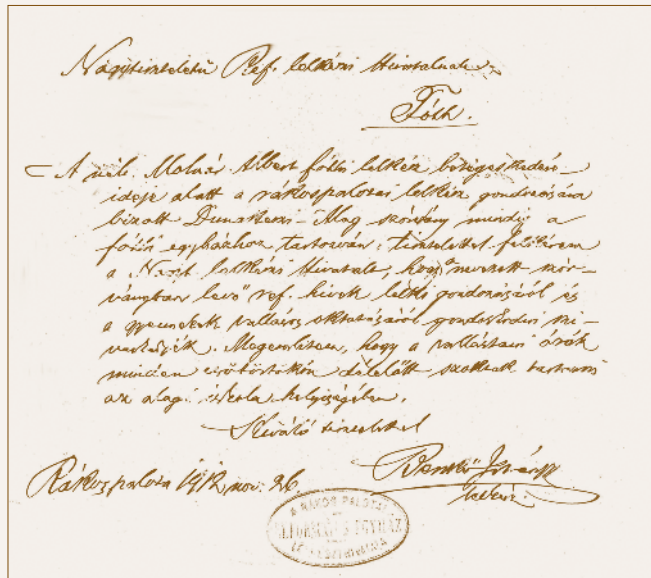 Nagytiszteletű Ref. lelkészi Hivatalnak
Fóth.
A néh. Molnár Albert fóthi lelkész betegeskedési
ideje alatt a rákospalotai lelkész gondozására
bizott Dunakeszi-Alag szórvány mindig a
fóthi egyházhoz tartozván, tisztelettel felkérem
a Nszt. lelkészi Hivatalt, hogy a nevezett szór-
ványban levő ref. hívek lelki gondozásáról és
a gyermekek vallásos oktatásáról gondoskodni
Megemlítem, hogy a vallástani órák
minden csütörtökön délelőtt szoktak tartatni
az alagi iskola helyiségében.
Kiváló tisztelettel
Rákospalota 1912, nov. 26
István
lelkész
A RÁKOS PALOTAI
REFORMÁTUS EGYHÁZ